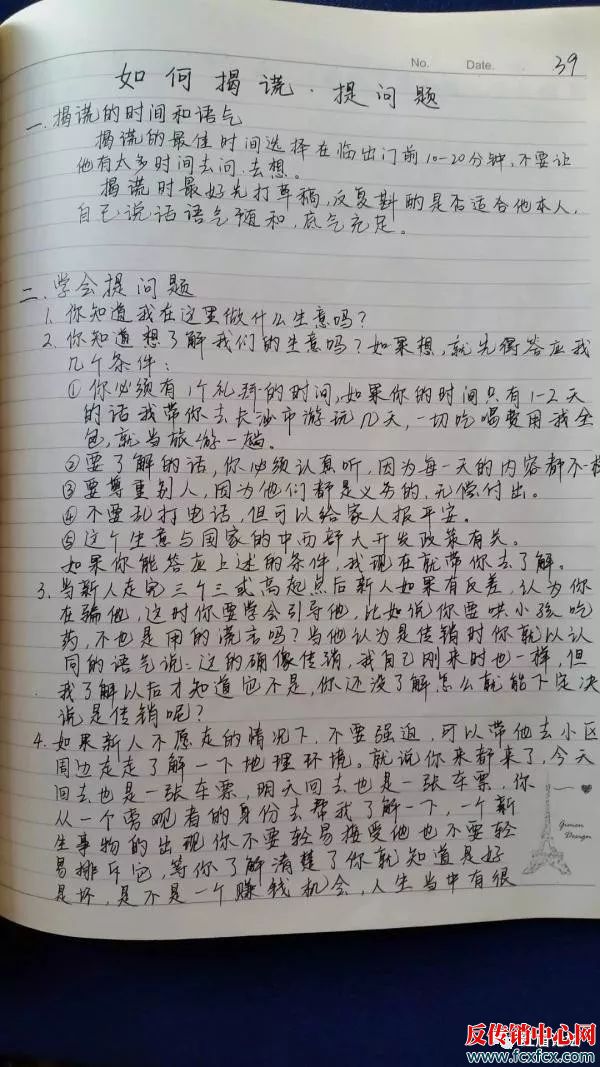 No. Date. 39
如何揭谎·提问题
一.揭谎的时间和语气
揭谎的最佳时间选择在临出门前10-20分钟,不要让
他有太多时间去问.去想。
揭谎时最好先打草稿,反复斟酌是否适合他本人,
自己说话语气平和,底气充足。
二.学会提问题
1.你知道我在这里做什么生意吗?
2.你知道想了解我们的生意吗?如果想,就先得答应我
几个条件:
①你必须有1个礼拜的时间,如果你的时间只有1-2天
的话我带你去长沙市游玩几天,一切吃喝费用我全
包,就当旅游一趟。
②要了解的话,你必须认真听,因为每一天的内容都不一样
③要尊重别人,因为他们都是义务的,无偿付出。
④不要乱打电话,但可以给家人报平安。
⑤这个生意与国家的中西部大开发政策有关。
如果你能答应上述的条件,我现在就带你去了解。
3.当新人走完三个三或高起点后新人如果有反差,认为你
在骗他,这时你要学会引导他,比如说你要哄小孩吃
药,不也是用的谎言吗?当他认为是传销时你就以认
同的语气说:这的确像传销,我自己刚来时也一样,但
我了解以后才知道它不是,你还没了解怎么就能下定决
说是传销呢?
4.如果新人不愿走的情况下,不要强迫,可以带他去小区
周边走走了解一下地理环境。就说你来都来了,今天
回去也是一张车票,明天回去也是一张车票,你
从一个旁观者的身份去帮我了解一下,一个新
生事物的出现你不要轻易接受他也不要轻
易排斥它,等你了解清楚了你就知道是好
是坏,是不是一个赚钱机会,人生当中有很
Design
反传销中心网
www.fcxfcx.com